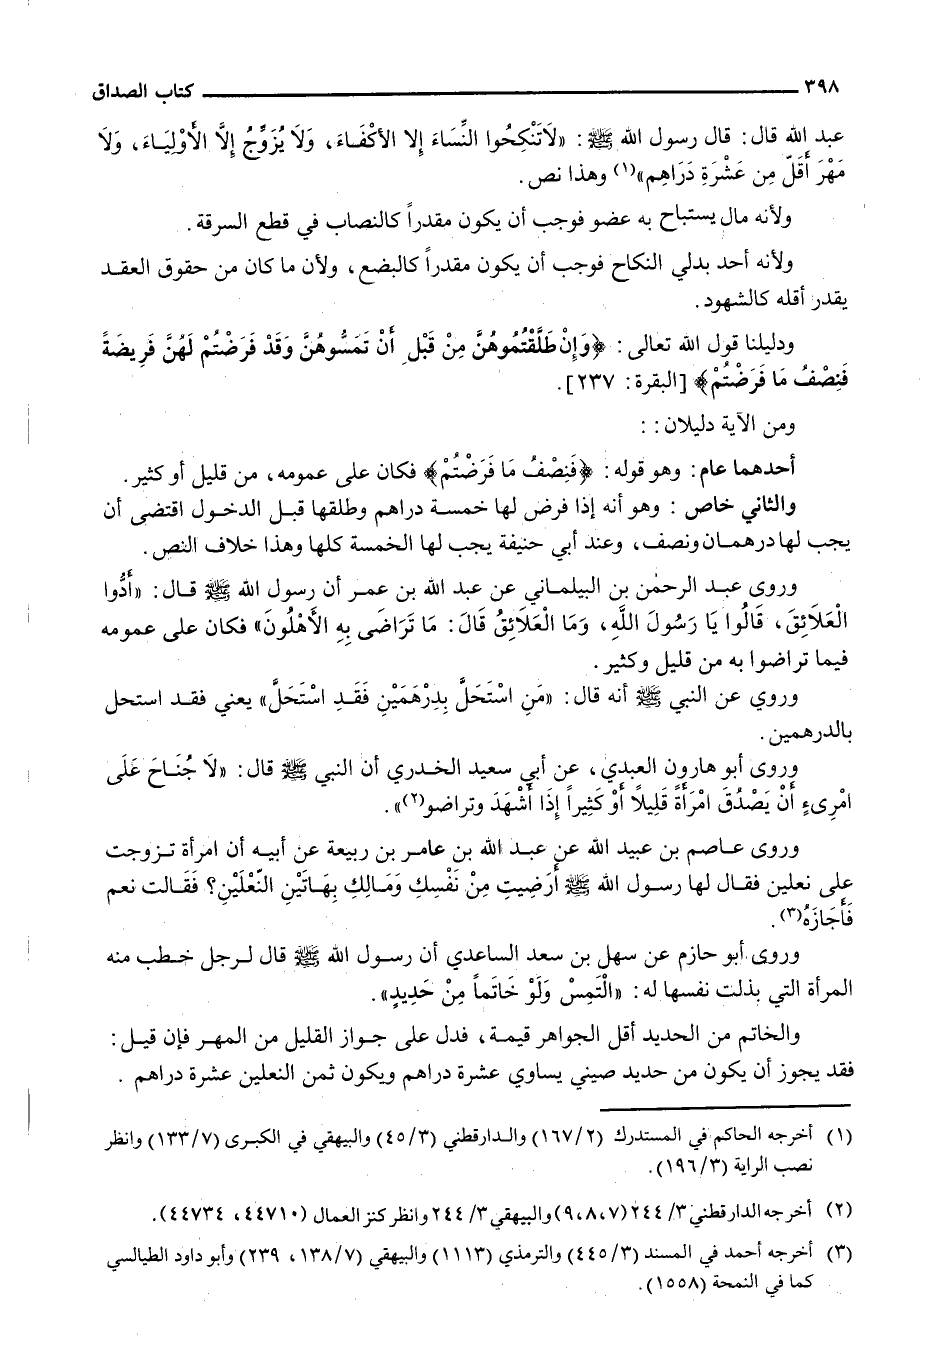 ٣٩٨ كتاب الصداق
عبد الله قال: قال رسول الله ﷺ: «لَاتَنْكِحُوا النِّسَاءَ إِلا الأَكْفَاءَ، وَلَا يُزَوِّجُ إِلَّا الْأَوْلِيَاءَ، وَلَا
مَهْرَ أَقَلّ مِن عَشْرَةِ دَرَاهِم»(١) وهذا نص.
ولأنه مال يستباح به عضو فوجب أن يكون مقدراً كالنصاب في قطع السرقة.
ولأنه أحد بدلي النكاح فوجب أن يكون مقدراً كالبضع، ولأن ما كان من حقوق العقد
يقدر أقله كالشهود.
ودليلنا قول الله تعالى: ﴿وَإِنْ طَلَّقْتُمُوهُنَّ مِنْ قَبْلِ أَنْ تَمَسُّوهُنَّ وَقَدْ فَرَضْتُمْ لَهُنَّ فَرِيضَةً
فَنِصْفُ مَا فَرَضْتُمْ﴾ [البقرة: ٢٣٧].
ومن الآية دليلان::
أحدهما عام: وهو قوله: ﴿فَنِصْفُ مَا فَرَضْتُمْ﴾ فكان على عمومه، من قليل أو كثير.
والثاني خاص: وهو أنه إذا فرض لها خمسة دراهم وطلقها قبل الدخول اقتضى أن
يجب لها درهمان ونصف، وعند أبي حنيفة يجب لها الخمسة كلها وهذا خلاف النص.
وروى عبد الرحمٰن بن البيلماني عن عبد الله بن عمر أن رسول الله ﷺ قال: «أَدُّوا
الْعَلَائِقَ، قَالُوا يَا رَسُولَ اللَّهِ، وَمَا الْعَلَائِقُ قَالَ: مَا تَرَاضَى بِهِ الأَهْلُونَ» فكان على عمومه
فيما تراضوا به من قليل وكثير.
وروي عن النبي ﷺ أنه قال: «مَنِ اسْتَحَلَّ بِدِرْهَمَيْنِ فَقَدِ اسْتَحَلَّ» يعني فقد استحل
بالدرهمين.
وروى أبو هارون العبدي، عن أبي سعيد الخدري أن النبي ﷺ قال: «لَا جُنَاحَ عَلَى
امْرِىءٍ أَنْ يَصْدُقَ امْرَأَةً قَلِيلاً أَوْ كَثِيراً إِذَا أَشْهَدَ وتراضو(٢)».
وروى عاصم بن عبيد الله عن عبد الله بن عامر بن ربيعة عن أبيه أن امرأة تزوجت
على نعلين فقال لها رسول الله ﷺ أَرَضِيتِ مِنْ نَفْسِكِ وَمَالِكِ بِهَاتَيْنِ النَّعْلَيْنِ؟ فَقَالت نعم
فَأَجَازَهُ(٣).
وروى أبو حازم عن سهل بن سعد الساعدي أن رسول الله ﷺ قال لرجل خطب منه
المرأة التي بذلت نفسها له: «الْتَمِسْ وَلَوْ خَاتَماً مِنْ حَدِيدٍ».
والخاتم من الحديد أقل الجواهر قيمة، فدل على جواز القليل من المهر فإن قيل:
فقد يجوز أن يكون من حديد صيني يساوي عشرة دراهم ويكون ثمن النعلين عشرة دراهم.
(١) أخرجه الحاكم في المستدرك (١٦٧/٢) والدارقطني (٤٥/٣) والبيهقي في الكبرى (١٣٣/٧) وانظر
نصب الراية (١٩٦/٣).
(٢) أخرجه الدارقطني ٣/ ٢٤٤(٧،٨،٩) والبيهقي ٣/ ٢٤٤ وانظر كنز العمال (٤٤٧١٠، ٤٤٧٣٤).
(٣) أخرجه أحمد في المسند (٤٤٥/٣) والترمذي (١١١٣) والبيهقي (١٣٨/٧، ٢٣٩) وأبو داود الطيالسي
كما في النمحة (١٥٥٨).